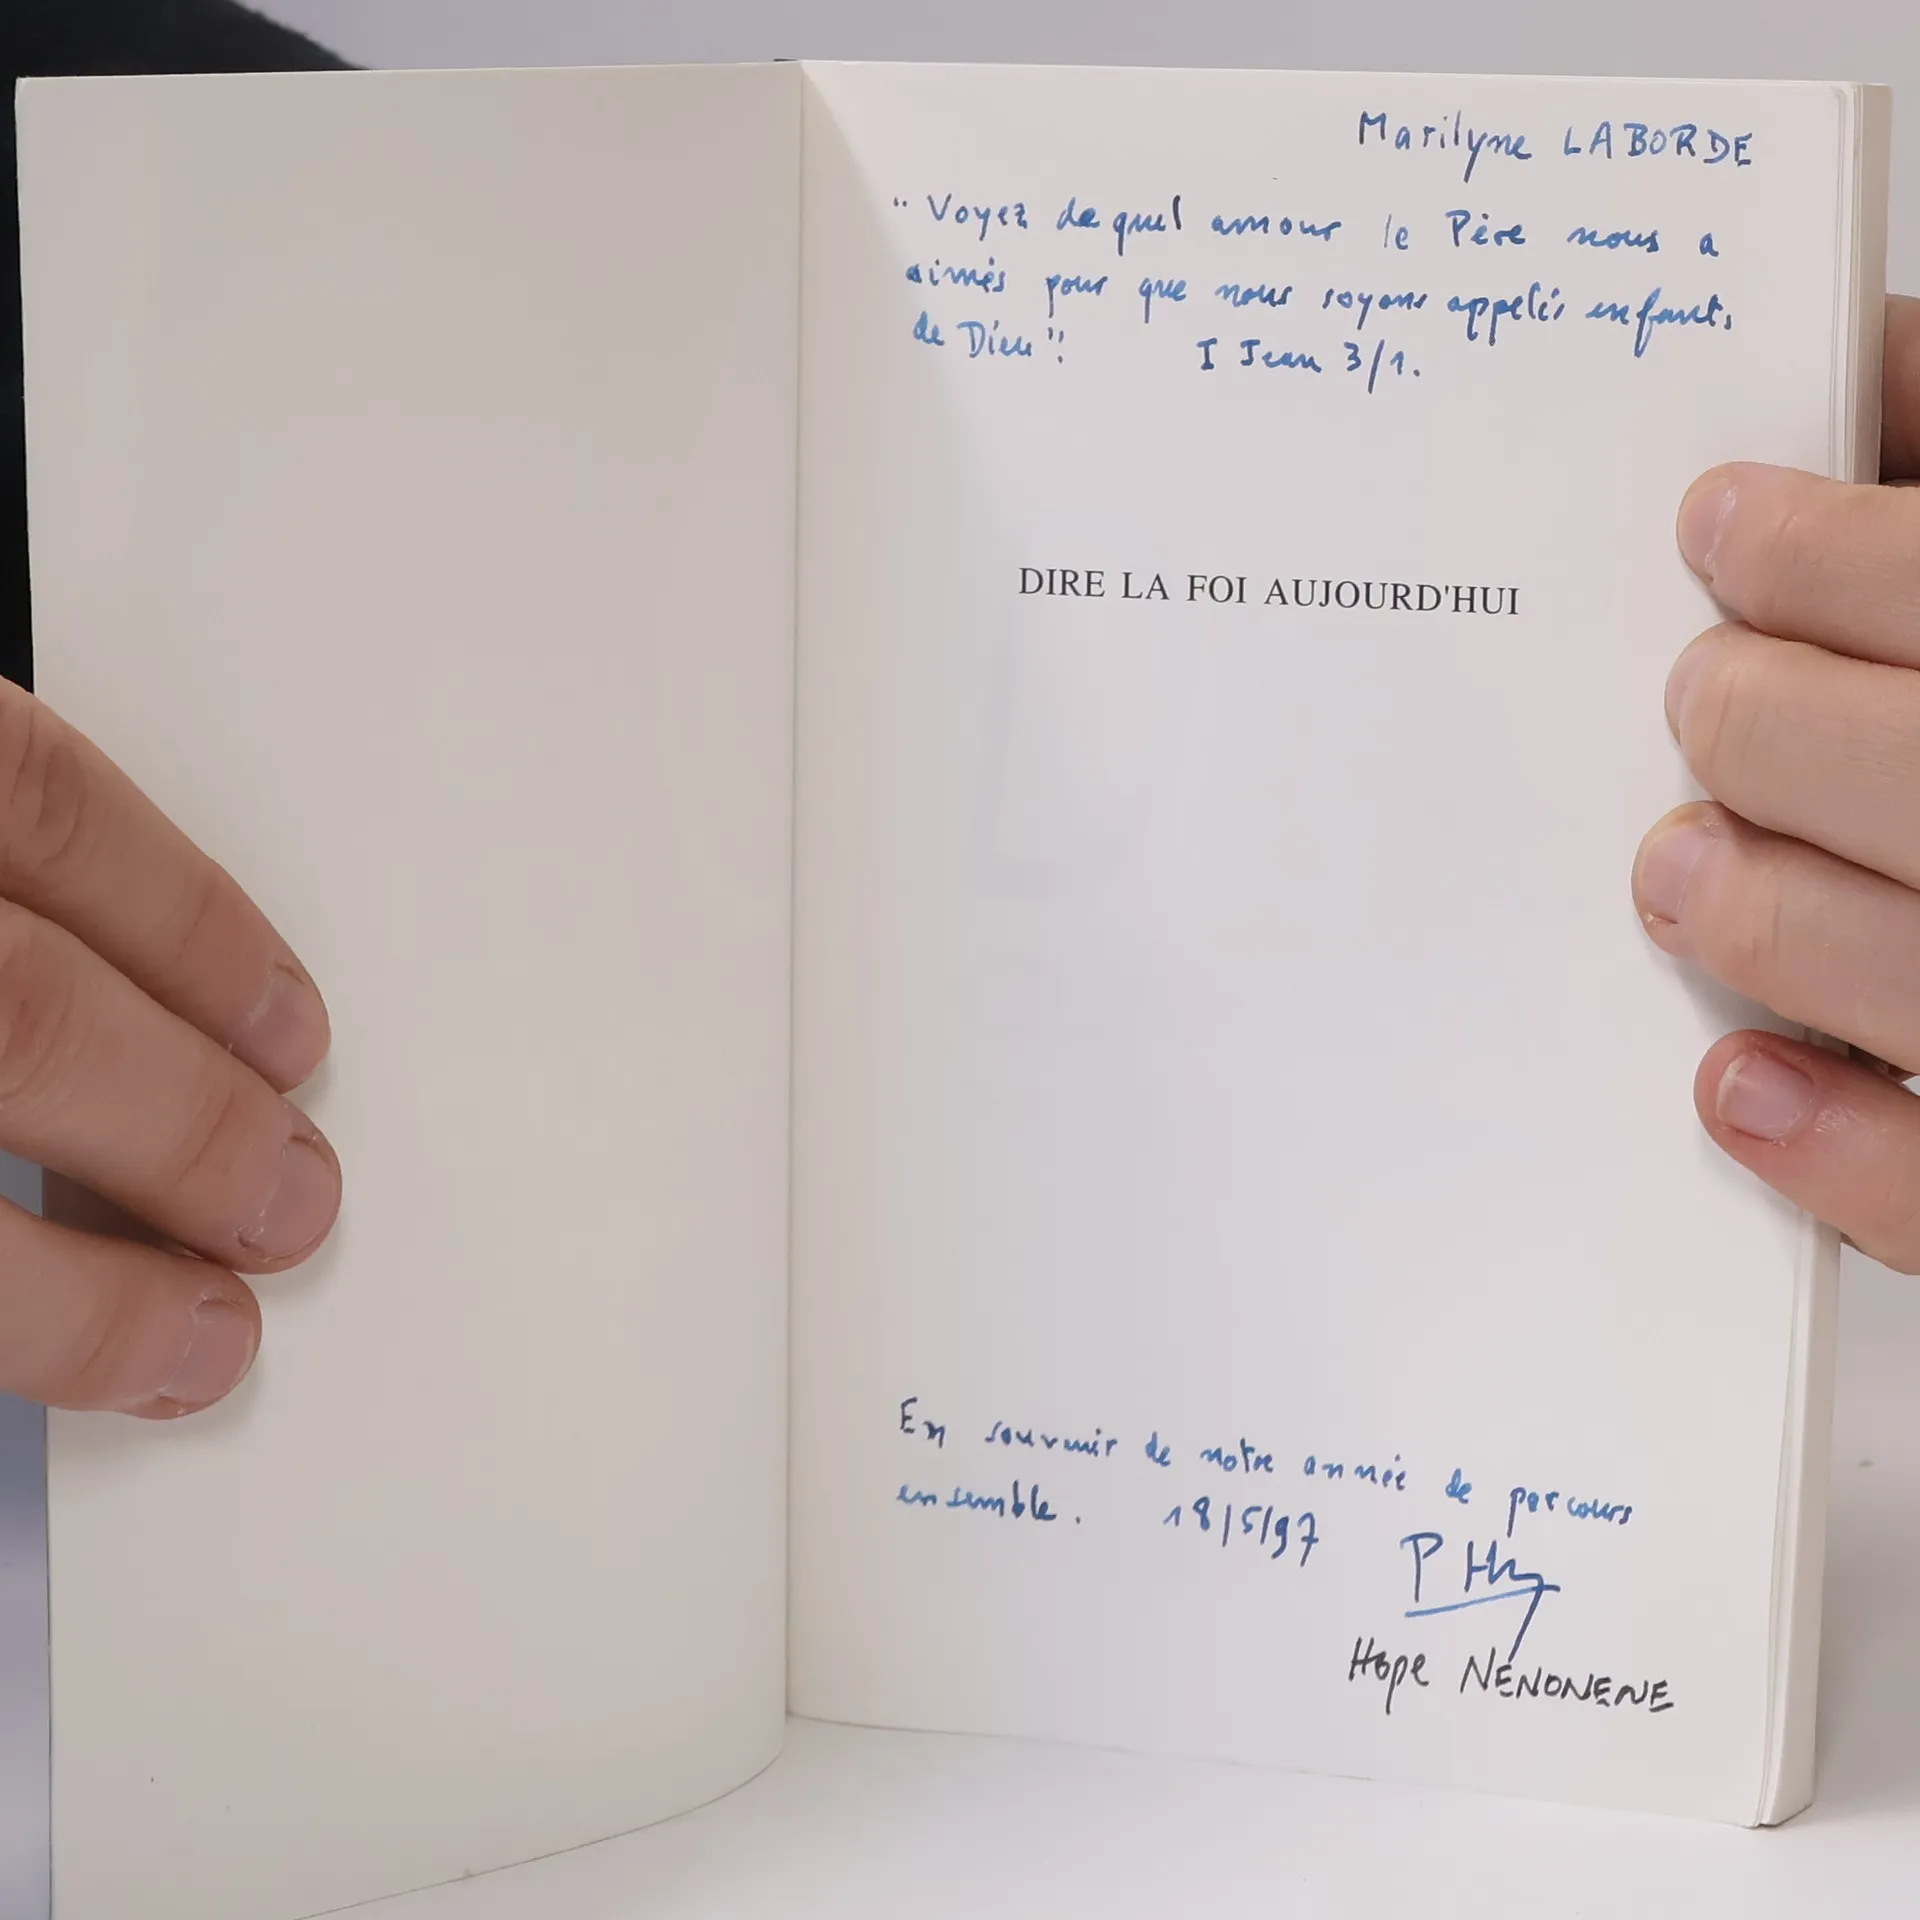 Marilyne LABORDE
"Voyez de quel amour le Père nous a
aimés pour que nous soyons appelés enfants
de Dieu".    I Jean 3/1.
DIRE LA FOI AUJOURD'HUI
En souvenir de notre année de parcours
ensemble.    18/5/97
Hope NENONENE